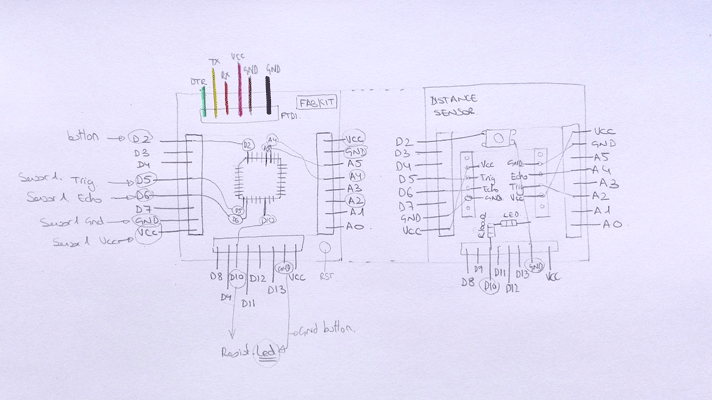 DTR
TX
RX
VCC
GND
GND
FTDI
FABKIT
button
D2
D3
D4
Trig
D5
Echo
D6
D7
Gnd
GND
Vcc
VCC
D2
A4
D10
VCC
GND
A5
A4
A3
A2
A1
A0
D8
D4
D10
D11
D12
D13
GND
VCC
RST
Gnd button
Resist.
Led
DISTANCE
SENSOR
D2
D3
D4
D5
D6
D7
GND
VCC
Vcc
Trig
Echo
GND
GND
Echo
Trig
Vcc
LED
VCC
GND
A5
A4
A3
A2
A1
A0
D8
D9
D10
D11
D12
D13
GND
VCC